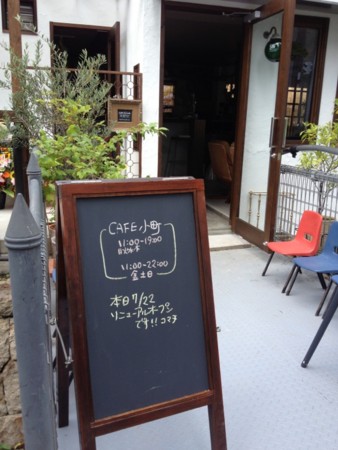 CAFE 小町
11:00-19:00
月火水木
11:00-22:00
金土日
本日7/22
リニューアルオープン
です!! コマチ